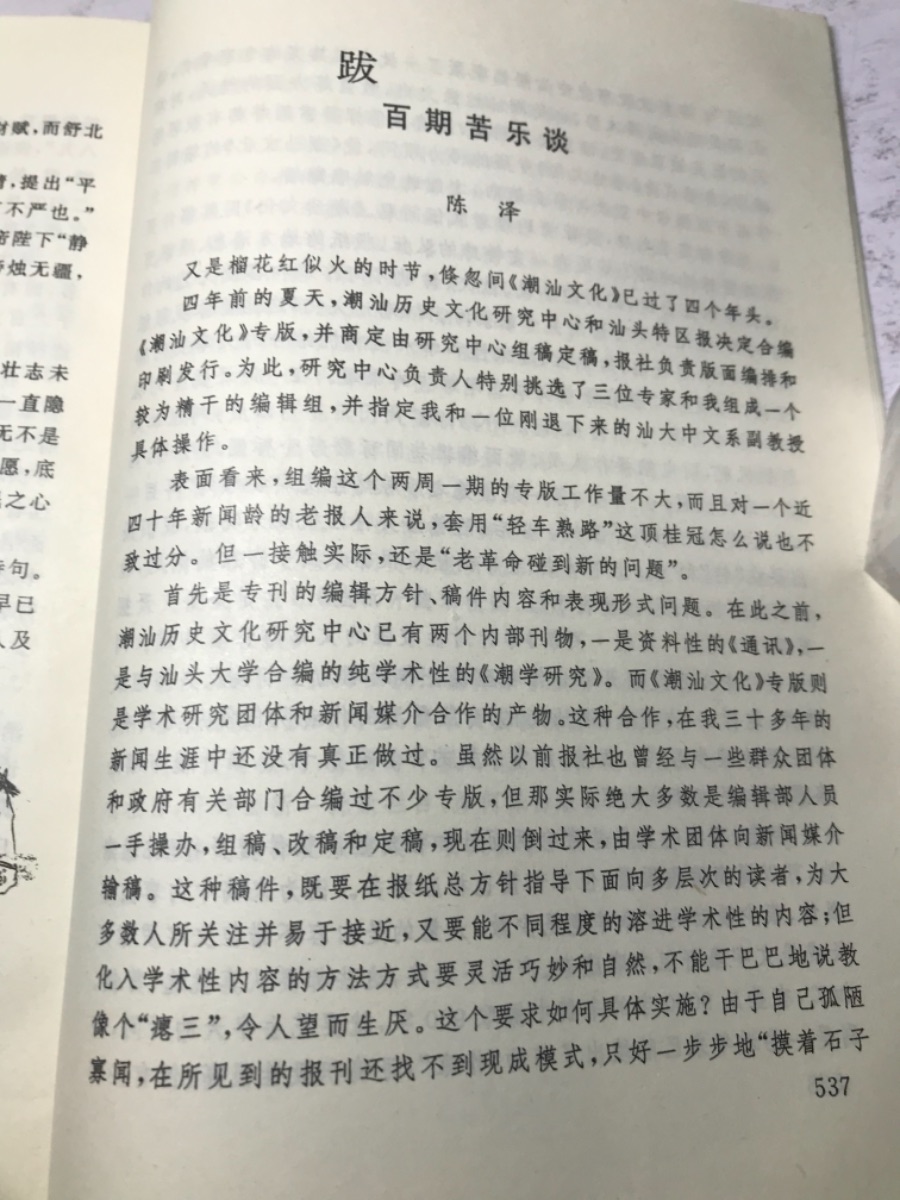 财赋,而舒北
提出“平
不严也。”
陛下“静
烛无疆,
壮志未
一直隐
无不是
愿,底
之心
句。
早已
人及
跋
百期苦乐谈
陈 泽
又是榴花红似火的时节,倏忽问《潮汕文化》已过了四个年头。
四年前的夏天,潮汕历史文化研究中心和汕头特区报决定合编
《潮汕文化》专版,并商定由研究中心组稿定稿,报社负责版面编排和
印刷发行。为此,研究中心负责人特别挑选了三位专家和我组成一个
较为精干的编辑组,并指定我和一位刚退下来的汕大中文系副教授
具体操作。
表面看来,组编这个两周一期的专版工作量不大,而且对一个近
四十年新闻龄的老报人来说,套用“轻车熟路”这顶桂冠怎么说也不
致过分。但一接触实际,还是“老革命碰到新的问题”。
首先是专刊的编辑方针、稿件内容和表现形式问题。在此之前,
潮汕历史文化研究中心已有两个内部刊物,一是资料性的《通讯》,一
是与汕头大学合编的纯学术性的《潮学研究》。而《潮汕文化》专版则
是学术研究团体和新闻媒介合作的产物。这种合作,在我三十多年的
新闻生涯中还没有真正做过。虽然以前报社也曾经与一些群众团体
和政府有关部门合编过不少专版,但那实际绝大多数是编辑部人员
一手操办,组稿、改稿和定稿,现在则倒过来,由学术团体向新闻媒介
输稿。这种稿件,既要在报纸总方针指导下面向多层次的读者,为大
多数人所关注并易于接近,又要能不同程度的溶进学术性的内容;但
化入学术性内容的方法方式要灵活巧妙和自然,不能干巴巴地说教
像个“瘪三”,令人望而生厌。这个要求如何具体实施?由于自己孤陋
寡闻,在所见到的报刊还找不到现成模式,只好一步步地“摸着石子
537